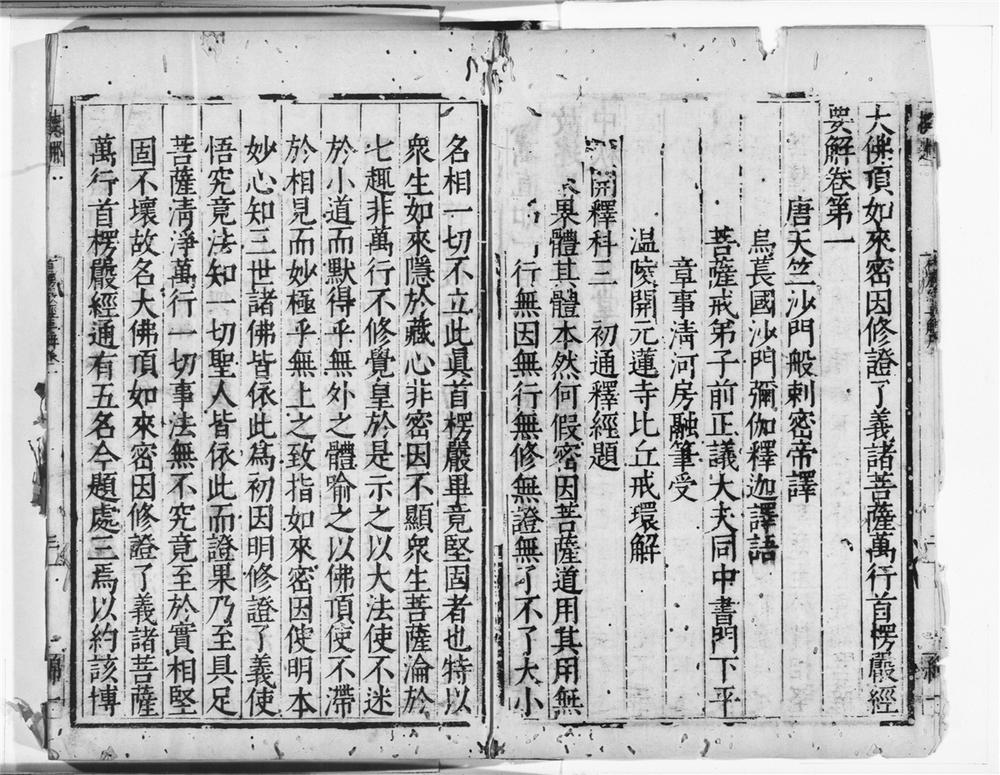 大佛頂如來密因修證了義諸菩薩萬行首楞嚴經
要解卷第一
唐天竺沙門般剌密帝譯
烏萇國沙門彌伽釋迦譯語
菩薩戒弟子前正議大夫同中書門下平
章事淸河房融筆受
溫陵開元蓮寺比丘戒環解
開釋科三 初通釋經題
界體其體本然何假密因菩薩道用其用無
行無因無行無修無證無了不了大小
名相一切不立此眞首楞嚴畢竟堅固者也特以
衆生如來隱於藏心非密因不顯衆生菩薩淪於
七趣非萬行不修覺皇於是示之以大法使不迷
於小道而默得乎無外之體喻之以佛頂使不滯
於相見而妙極乎無上之致指如來密因使明本
妙心知三世諸佛皆依此爲初因明修證了義使
悟究竟法知一切聖人皆依此而證果乃至具足
菩薩淸淨萬行一切事法無不究竟至於實相堅
固不壞故名大佛頂如來密因修證了義諸菩薩
萬行首楞嚴經通有五名今題處三焉以約該博